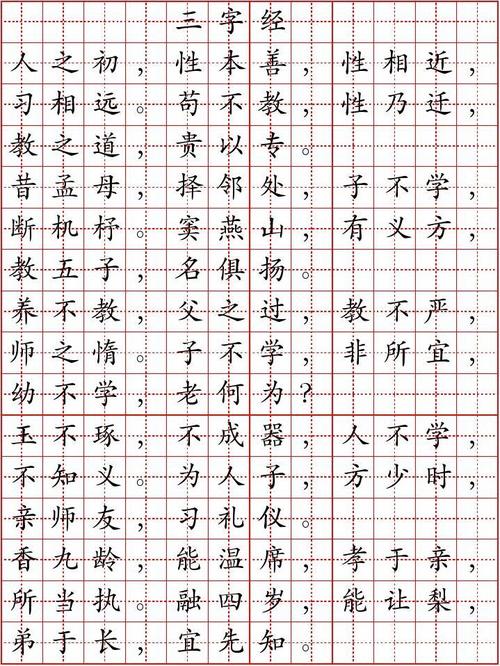 三字经
人之初，性本善，性相近，
习相远。苟不教，性乃迁，
教之道，贵以专。
昔孟母，择邻处，子不学，
断机杼。窦燕山，有义方，
教五子，名俱扬。
养不教，父之过，教不严，
师之惰。子不学，非所宜，
幼不学，老何为？
玉不琢，不成器，人不学，
不知义。为人子，方少时，
亲师友，习礼仪。
香九龄，能温席，孝于亲，
所当执。融四岁，能让梨，
弟于长，宜先知。